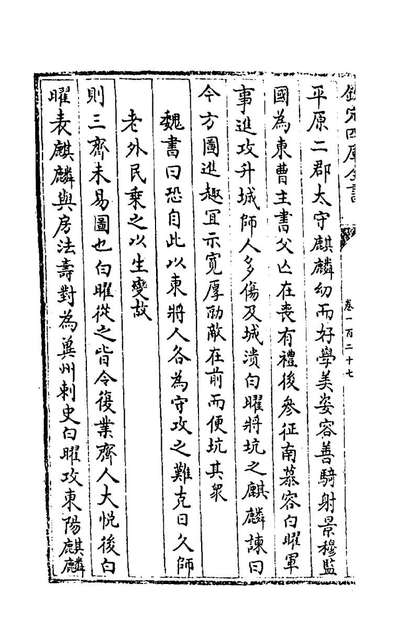 欽定四庫全書
卷一百二十七
平原二郡太守麒麟幼而好學美姿容善騎射景穆監
國為東曹主書父亡在喪有禮後參征南慕容白曜軍
事進攻升城師人多傷及城潰白曜將坑之麒麟諫曰
今方圖進趣宜示寬厚勍敵在前而便坑其衆
魏書曰恐自此以東將人各為守攻之難克日久師
老外民乘之以生變故
則三齊未易圖也白曜從之皆令復業齊人大悅後白
曜表麒麟與房法壽對為冀州刺史白曜攻東陽麒麟